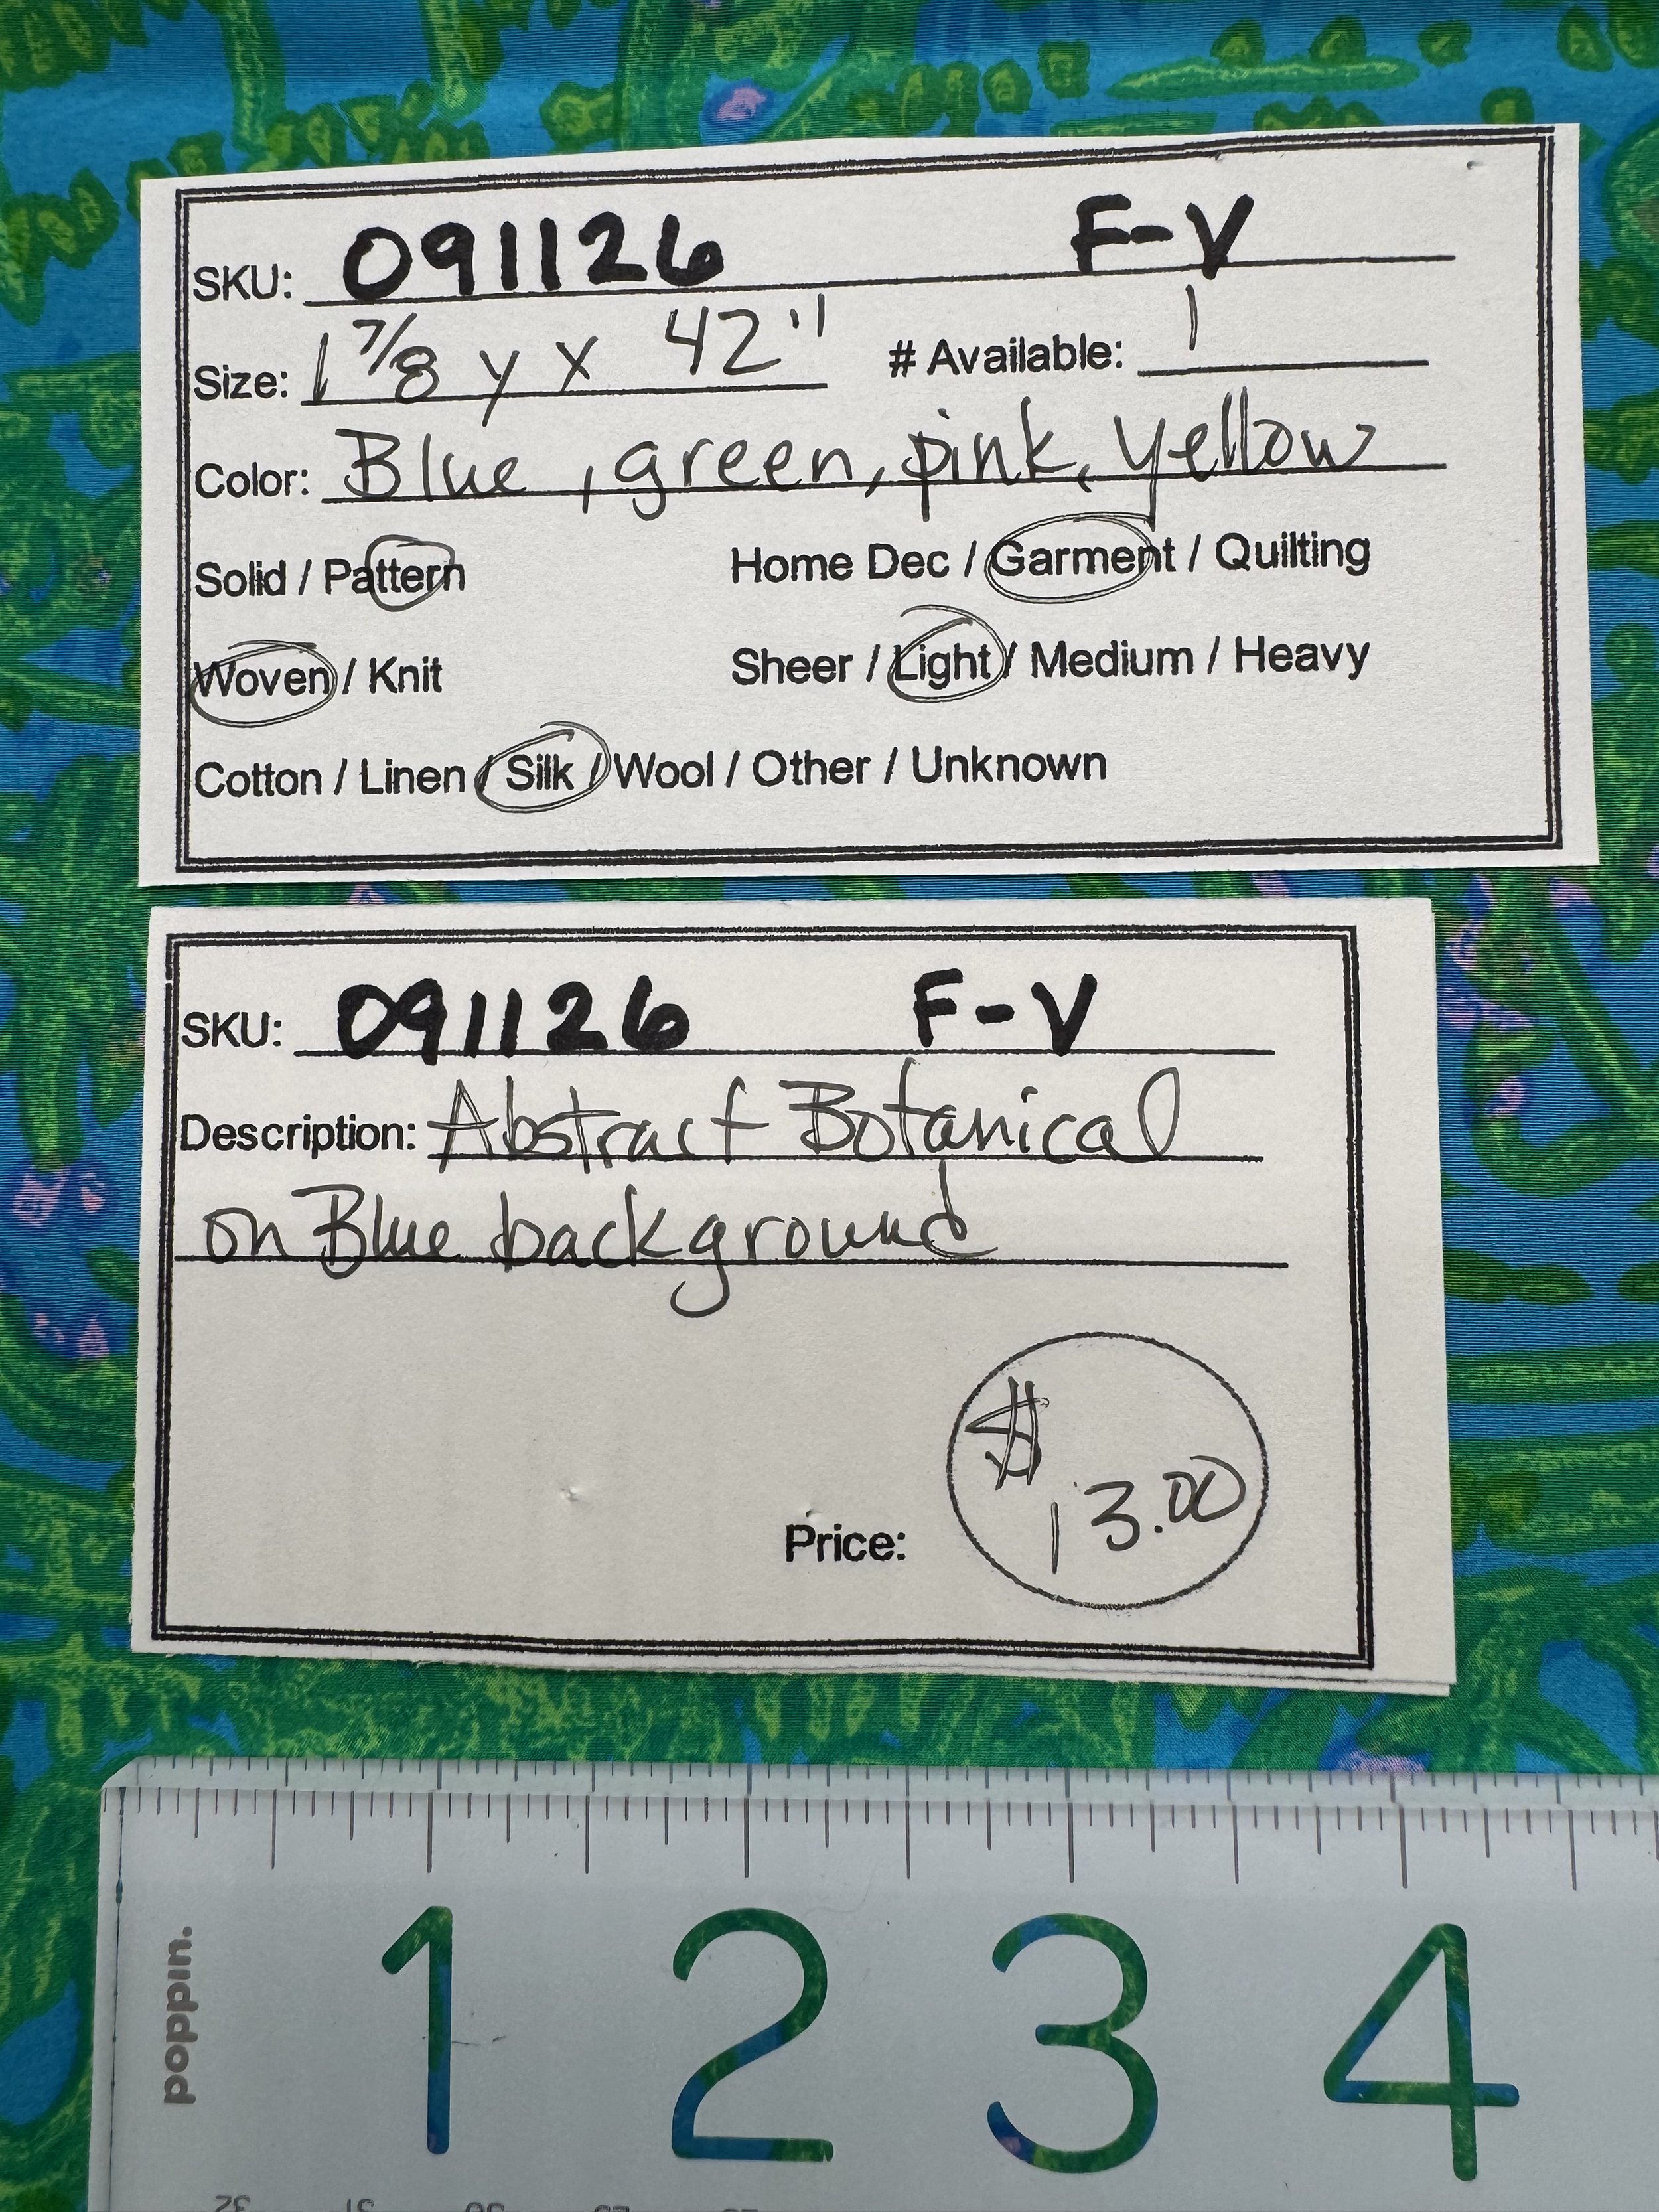 SKU: 091126 F-V
Size: 1 7/8 y x 42" # Available: 1
Color: Blue, green, pink, yellow
Solid / Pattern Home Dec / Garment / Quilting
Woven / Knit Sheer / Light / Medium / Heavy
Cotton / Linen / Silk / Wool / Other / Unknown
SKU: 091126 F-V
Description: Abstract Botanical
on Blue background
$
Price: 13.00
poppin.
1 2 3 4
32 31 30 29